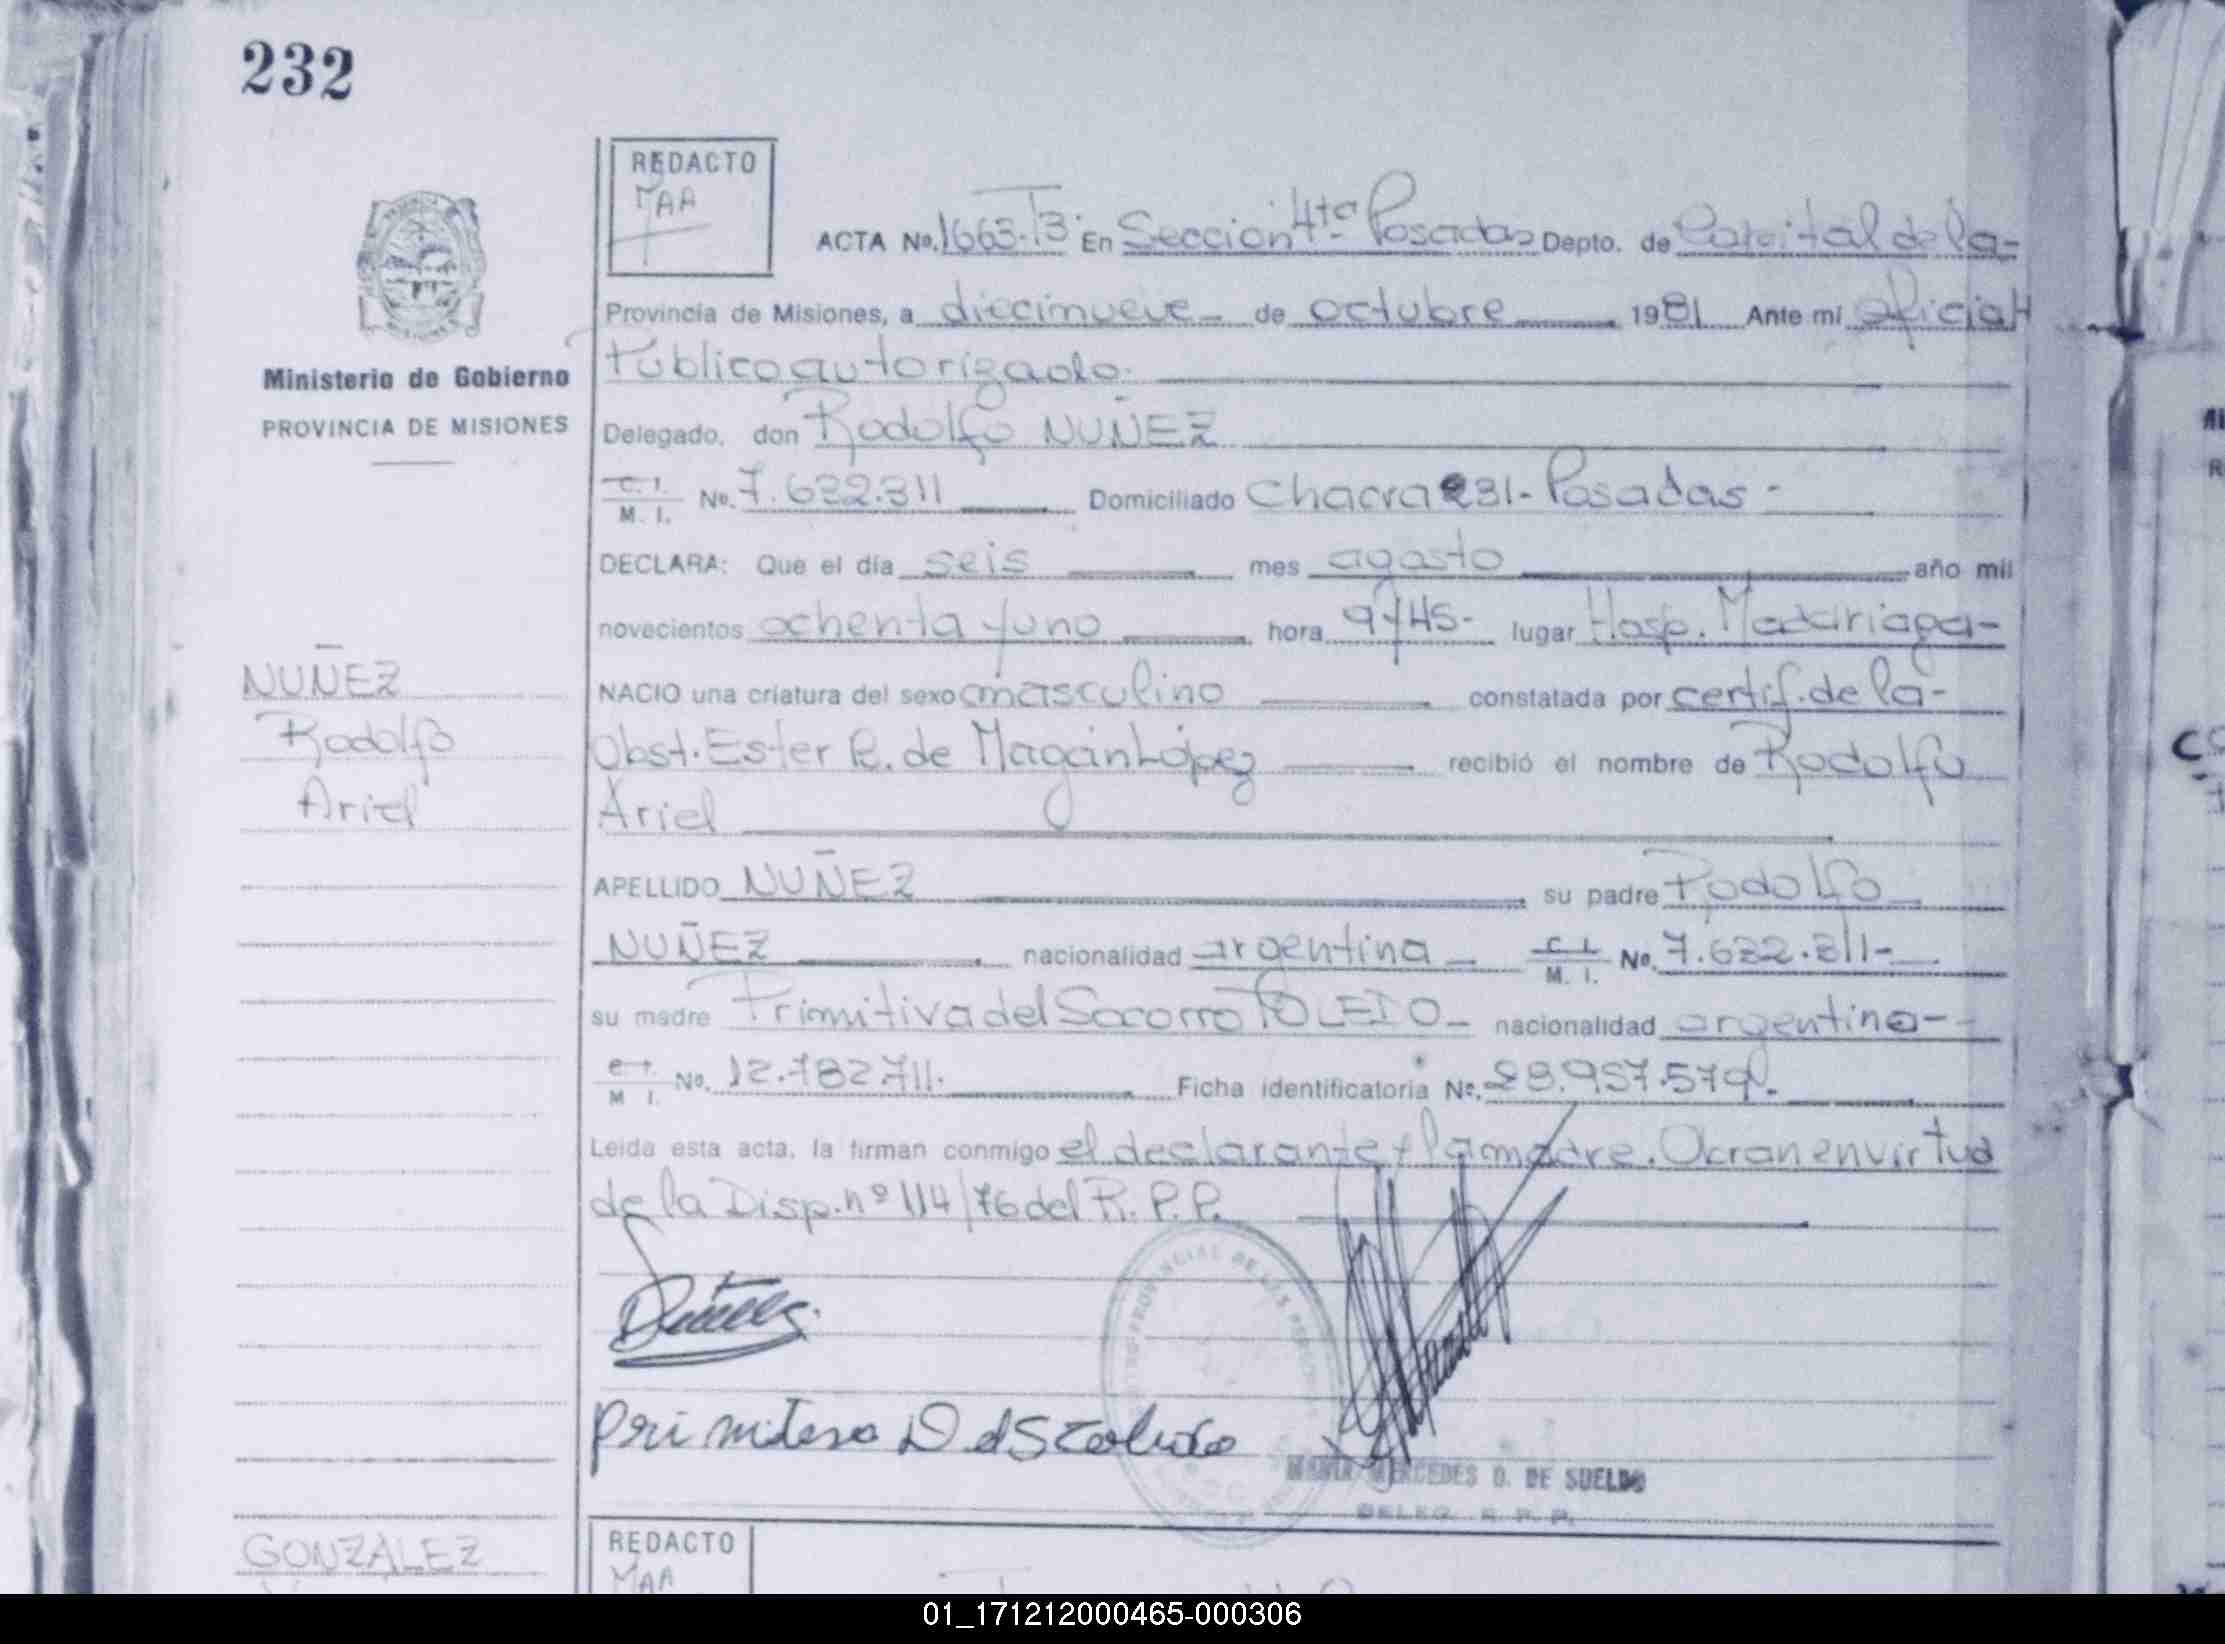 232
REDACTO
MAA
ACTA No. 1663-T3 En Sección 4ta Posadas Depto. de Capital de la-
Provincia de Misiones, a diecinueve de octubre 1981 Ante mí oficial
Público autorizado.
Ministerio de Gobierno
PROVINCIA DE MISIONES
Delegado, don Rodolfo NUÑEZ
C. I. M. I. No. 7.632.311 Domiciliado Chacra 231-Posadas-
DECLARA: Que el día seis mes agosto año mil
novecientos ochenta y uno hora 9y45- lugar Hosp. Madariaga-
NACIO una criatura del sexo masculino constatada por certif. de la-
Obst. Ester R. de Magan López recibió el nombre de Rodolfo
Ariel
NUÑEZ
Rodolfo
Ariel
APELLIDO NUÑEZ su padre Rodolfo
NUÑEZ nacionalidad argentina C. I. M. I. No. 7.632.311-
su madre Primitiva del Socorro TOLEDO- nacionalidad argentina-
C. I. M. I. No. 12.782.711. Ficha identificatoria No. 28.957.579.
Leída esta acta, la firman conmigo el declarante y la madre. en virtud
de la Disp. nº 114/76 del R. P. P.
MARIA MERCEDES D. DE SUELDO
DELEG. R. P. P.
GONZALEZ
REDACTO
MAA
01_171212000465-000306